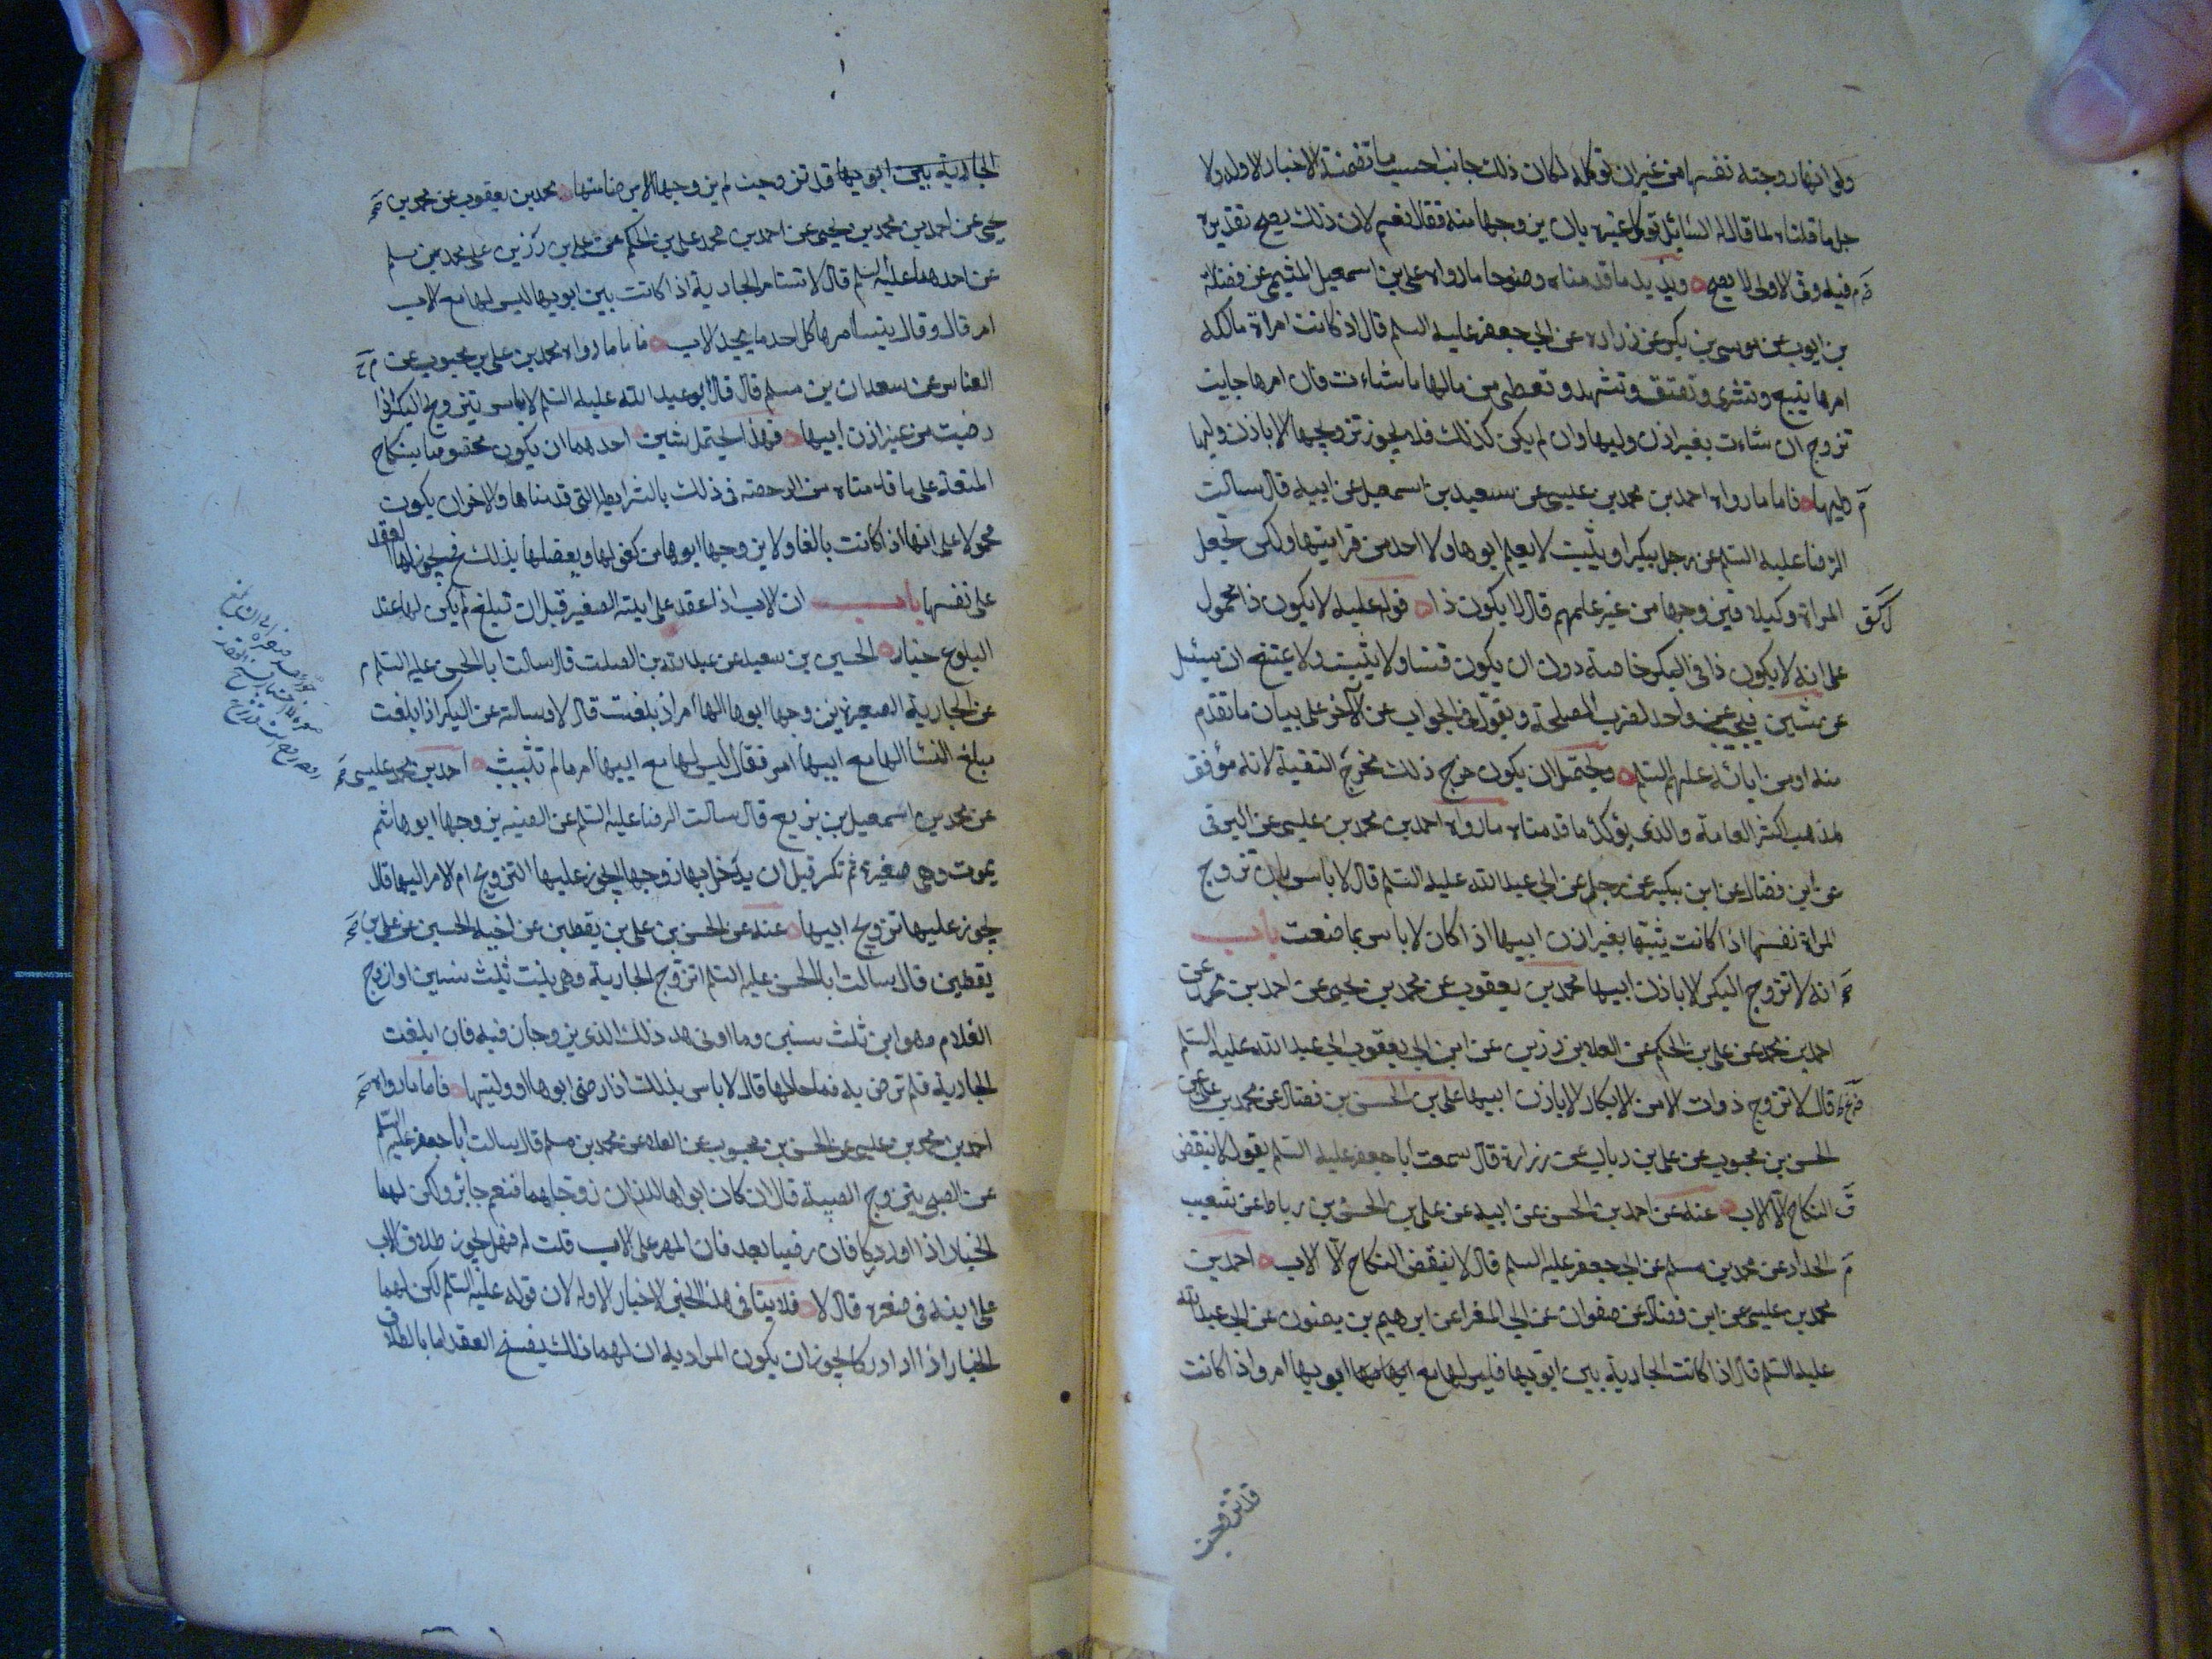 ولو انها زوجته نفسها من غير ان توكله لكان ذلك جايزا حسب ما تضمنته الاخبار الاولة ولا
جل ما قلناه لما قال له السائل توكل غيره بان يزوجها منه فقال نعم لان ذلك يصح تقديره
فيه وفى الاولى لا يصح ويزيد ما قدمناه وضوحا ما رواه على بن اسمعيل الميثمى عن فضالة
بن ايوب عن موسى بن بكير عن زرارة عن ابى جعفر عليه السلم قال اذ كانت امراة مالكه
امرها تبيع وتشرى وتعتق وتشهد وتعطى من مالها ما شاءت فان امرها جايز
تزوج ان شاءت بغير اذن وليها وان لم يكن كذلك فلا يجوز تزويجها الا باذن وليها
فاما ما رواه احمد بن محمد بن عيسى عن سعيد بن اسمعيل عن ابيه قال سالت
الرضا عليه السلم عن رجل ببكر او بثيب لا يعلم ابوها ولا احد من قرابتها ولكن تجعل
المراة وكيلا فيزوجها من غير علمهم قال لا يكون ذا قوله عليه لا يكون ذا محمول
على انه لا يكون ذا فى البكر خاصة دون ان يكون قنتا ولا يثيب ولا يمتنع ان يسئل
عن شيئين فيجيب عن واحد لضرب المصلحة ويقول فى الجواب عن الآخر على بيان ما تقدم
منه او من ابائه عليهم السلم ويحتمل ان يكون خرج ذلك مخرج التقية لانه موافق
لمذهب اكثر العامة والذى يؤكد ما قدمناه ما رواه احمد بن محمد بن عيسى عن البرقى
عن ابن فضال عن ابن بكير عن رجل عن ابى عبد الله عليه السلم قال لا باس بان تزوج
المراة نفسها اذا كانت ثيبتا بغير اذن ابيها اذا كان لا باس بما صنعت باب
انه لا تزوج البكر الا باذن ابيها محمد بن يعقوب عن محمد بن يحيى عن احمد بن محمد عن
احمد بن محمد عن على بن الحكم عن العلا بن رزين عن ابن ابى يعقوب ابى عبد الله عليه السلم
قال لا تزوج ذوات الامن الابكار الا باذن ابيها على بن الحسن بن فضال عن محمد بن على عن
الحسن بن محبوب عن على بن رباب عن زرارة قال سمعت ابا جعفر عليه السلم يقول لا ينقض
النكاح الا الاب عنه عن احمد بن الحسن عن ابيه عن على بن الحسن بن رباط عن شعيب
الحداد عن محمد بن مسلم عن ابى جعفر عليه السلم قال لا ينقض النكاح الا الاب احمد بن
محمد بن عيسى عن ابن فضال عن صفوان عن ابى المغرا عن ابرهيم بن ميمون عن ابى عبد الله
عليه السلم قال اذا كانت الجارية بين ابويها فليس لها مع ابويها امر واذا كانت
قد تزوجت
الجارية بين ابويها قد تزوجت لم يزوجها الا برضا منها محمد بن يعقوب عن محمد بن
يحيى عن احمد بن محمد بن يحيى عن احمد بن محمد على بن الحكم عن على بن رزين على محمد بن مسلم
عن احدهما عليه السلم قال لا تستامر الجارية اذا كانت بين ابويها ليس لها مع الاب
امر قال وقال يستامرها كل احد ما عدا الاب فاما ما رواه محمد بن على بن محبوب عن
العباس عن سعدان بن مسلم قال قال ابو عبد الله عليه السلم لا باس بتزويج البكر اذا
رضيت من غير اذن ابيها فهذا يحتمل شيئين احدهما ان يكون مخصوصا بنكاح
المتعة على ما قدمناه من الرخصة فى ذلك بالشرايط التى قدمناها والاخر ان يكون
محمولا على انها اذا كانت بالغا ولا يزوجها ابوها من كفو لها ويعضلها بذلك فيجوز لها العقد
على نفسها باب ان الاب اذا عقد على ابنته الصغير قبل ان تبلغ لم يكن لها عند
البلوغ خيار الحسين بن سعيد عن عبد الله بن الصلت قال سالت ابا الحسن عليه السلم
عن الجارية الصغيرة يزوجها ابوها الها امر اذ بلغت قال لا وسالته عن البكر اذا بلغت
مبلغ النسأ الها مع ابيها امر فقال ليس لها مع ابيها امر ما لم تثيب احمد بن محمد بن عيسى
عن محمد بن اسمعيل بن بزيع قال سالت الرضا عليه السلم عن الصبية يزوجها ابوها ثم
يموت وهى صغيرة ثم تكبر قبل ان يدخل بها زوجها ايجوز عليها التزويج ام الامر اليها قال
يجوز عليها تزويج ابيها عنه عن الحسن بن على بن يقطين عن اخيه الحسين عن على بن
يقطين قال سالت ابا الحسن عليه السلم اتزوج الجارية وهى بنت ثلث سنين او ازوج
الغلام وهو ابن ثلث سنين وما ادنى حد ذلك الذى يزوجان فيه فان ابلغت
الجارية فلم ترض به فما حالها قال لا باس بذلك اذا رضى ابوها او وليها فاما ما رواه
احمد بن محمد بن عيسى عن الحسن بن محبوب عن العلا عن محمد بن مسلم قال سالت ابا جعفر عليه السلم
عن الصبى يتزوج الصبية قال ان كان ابواهما اللذان زوجاهما فنعم جائز ولكن لهما
الخيار اذا ادركا فان رضيا بعد فان المهر على الاب قلت له فهل يجوز طلاق الاب
على ابنه فى صغره قال لا فلا ينافى هذا الخبر الاخبار الاولة لان قوله عليه السلم لكن لهما
الخيار اذا ادركا يجوز ان يكون المراد به ان لهما ذلك بفسخ العقد اما بالطلاق